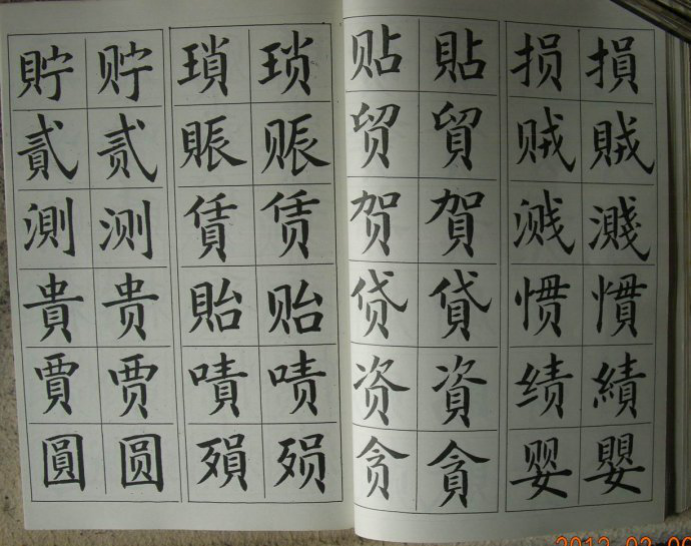 貯 贮 瑣 琐 贴 貼 损 損
貳 贰 賑 赈 贸 貿 贼 賊
測 测 賃 赁 贺 賀 溅 濺
貴 贵 貽 贻 贷 貸 惯 慣
賈 贾 嘖 啧 资 資 绩 績
圓 圆 殞 殒 贪 貪 婴 嬰